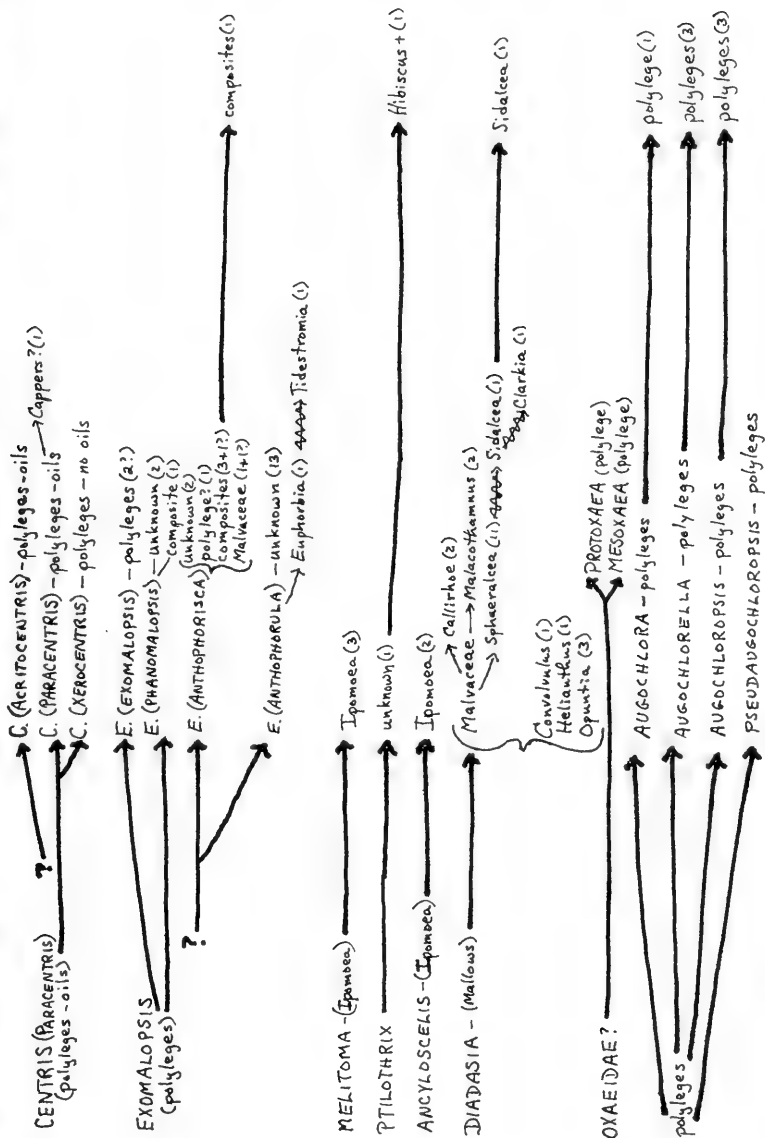 CENTRIS (PARACENTRIS)
(polyleges-oils)
?
C. (ACRITOCENTRIS) - polyleges-oils
C. (PARACENTRIS) - polyleges - oils
Cappers? (1)
C. (XEROCENTRIS) - polyleges - no oils
EXOMALOPSIS
(polyleges)
E. (EXOMALOPSIS) - polyleges (2?)
E. (PHANOMALOPSIS) - unknown (2)
composite (1)
?
E. (ANTHOPHORISCA)
unknown (2)
polylege? (1)
composites (3+1?)
Malvaceae (1+1?)
composites (1)
E. (ANTHOPHORULA) - unknown (13)
Euphorbia (1)
Tidestromia (1)
MELITOMA - (Ipomoea)
Ipomoea (3)
PTILOTHRIX
unknown (1)
Hibiscus + (1)
ANCYLOSCELIS - (Ipomoea)
Ipomoea (2)
DIADASIA - (Mallows)
Callirhoe (2)
Malvaceae
Malacothamnus (2)
Sphaeralcea (11)
Sidalcea (1)
Sidalcea (1)
Clarkia (1)
Convolvulus (1)
Helianthus (1)
Opuntia (3)
OXAEIDAE?
PROTOXAEA (polylege)
MESOXAEA (polylege)
polyleges
AUGOCHLORA - polyleges
polylege (1)
AUGOCHLORELLA - polyleges
polyleges (3)
AUGOCHLOROPSIS - polyleges
polyleges (3)
PSEUDAUGOCHLOROPSIS - polyleges